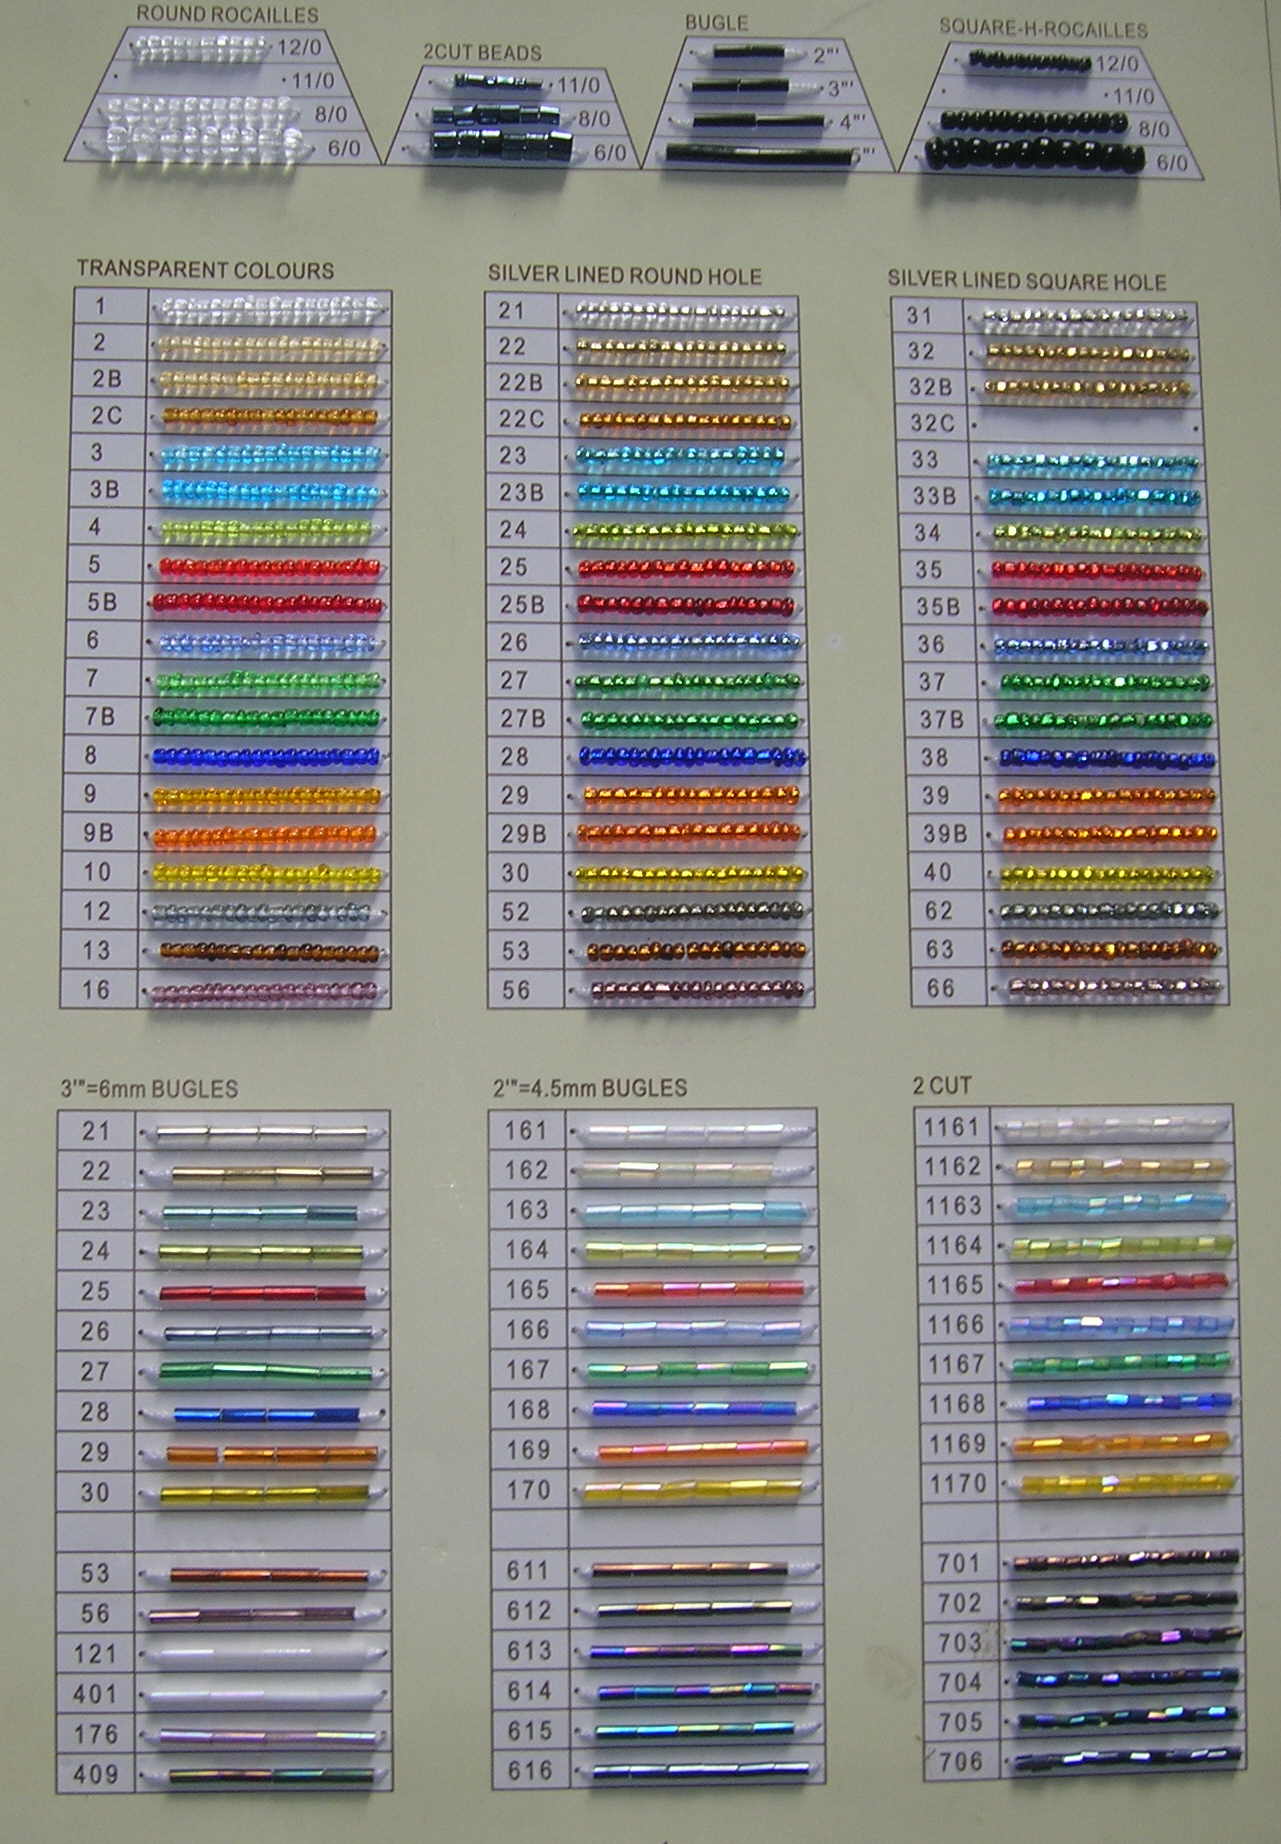 ROUND ROCAILLES
12/0
11/0
8/0
6/0
2CUT BEADS
11/0
8/0
6/0
BUGLE
2"'
3"'
4"'
5"'
SQUARE-H-ROCAILLES
12/0
11/0
8/0
6/0
TRANSPARENT COLOURS
1
2
2B
2C
3
3B
4
5
5B
6
7
7B
8
9
9B
10
12
13
16
SILVER LINED ROUND HOLE
21
22
22B
22C
23
23B
24
25
25B
26
27
27B
28
29
29B
30
52
53
56
SILVER LINED SQUARE HOLE
31
32
32B
32C
33
33B
34
35
35B
36
37
37B
38
39
39B
40
62
63
66
3'"=6mm BUGLES
21
22
23
24
25
26
27
28
29
30
53
56
121
401
176
409
2'"=4.5mm BUGLES
161
162
163
164
165
166
167
168
169
170
611
612
613
614
615
616
2 CUT
1161
1162
1163
1164
1165
1166
1167
1168
1169
1170
701
702
703
704
705
706